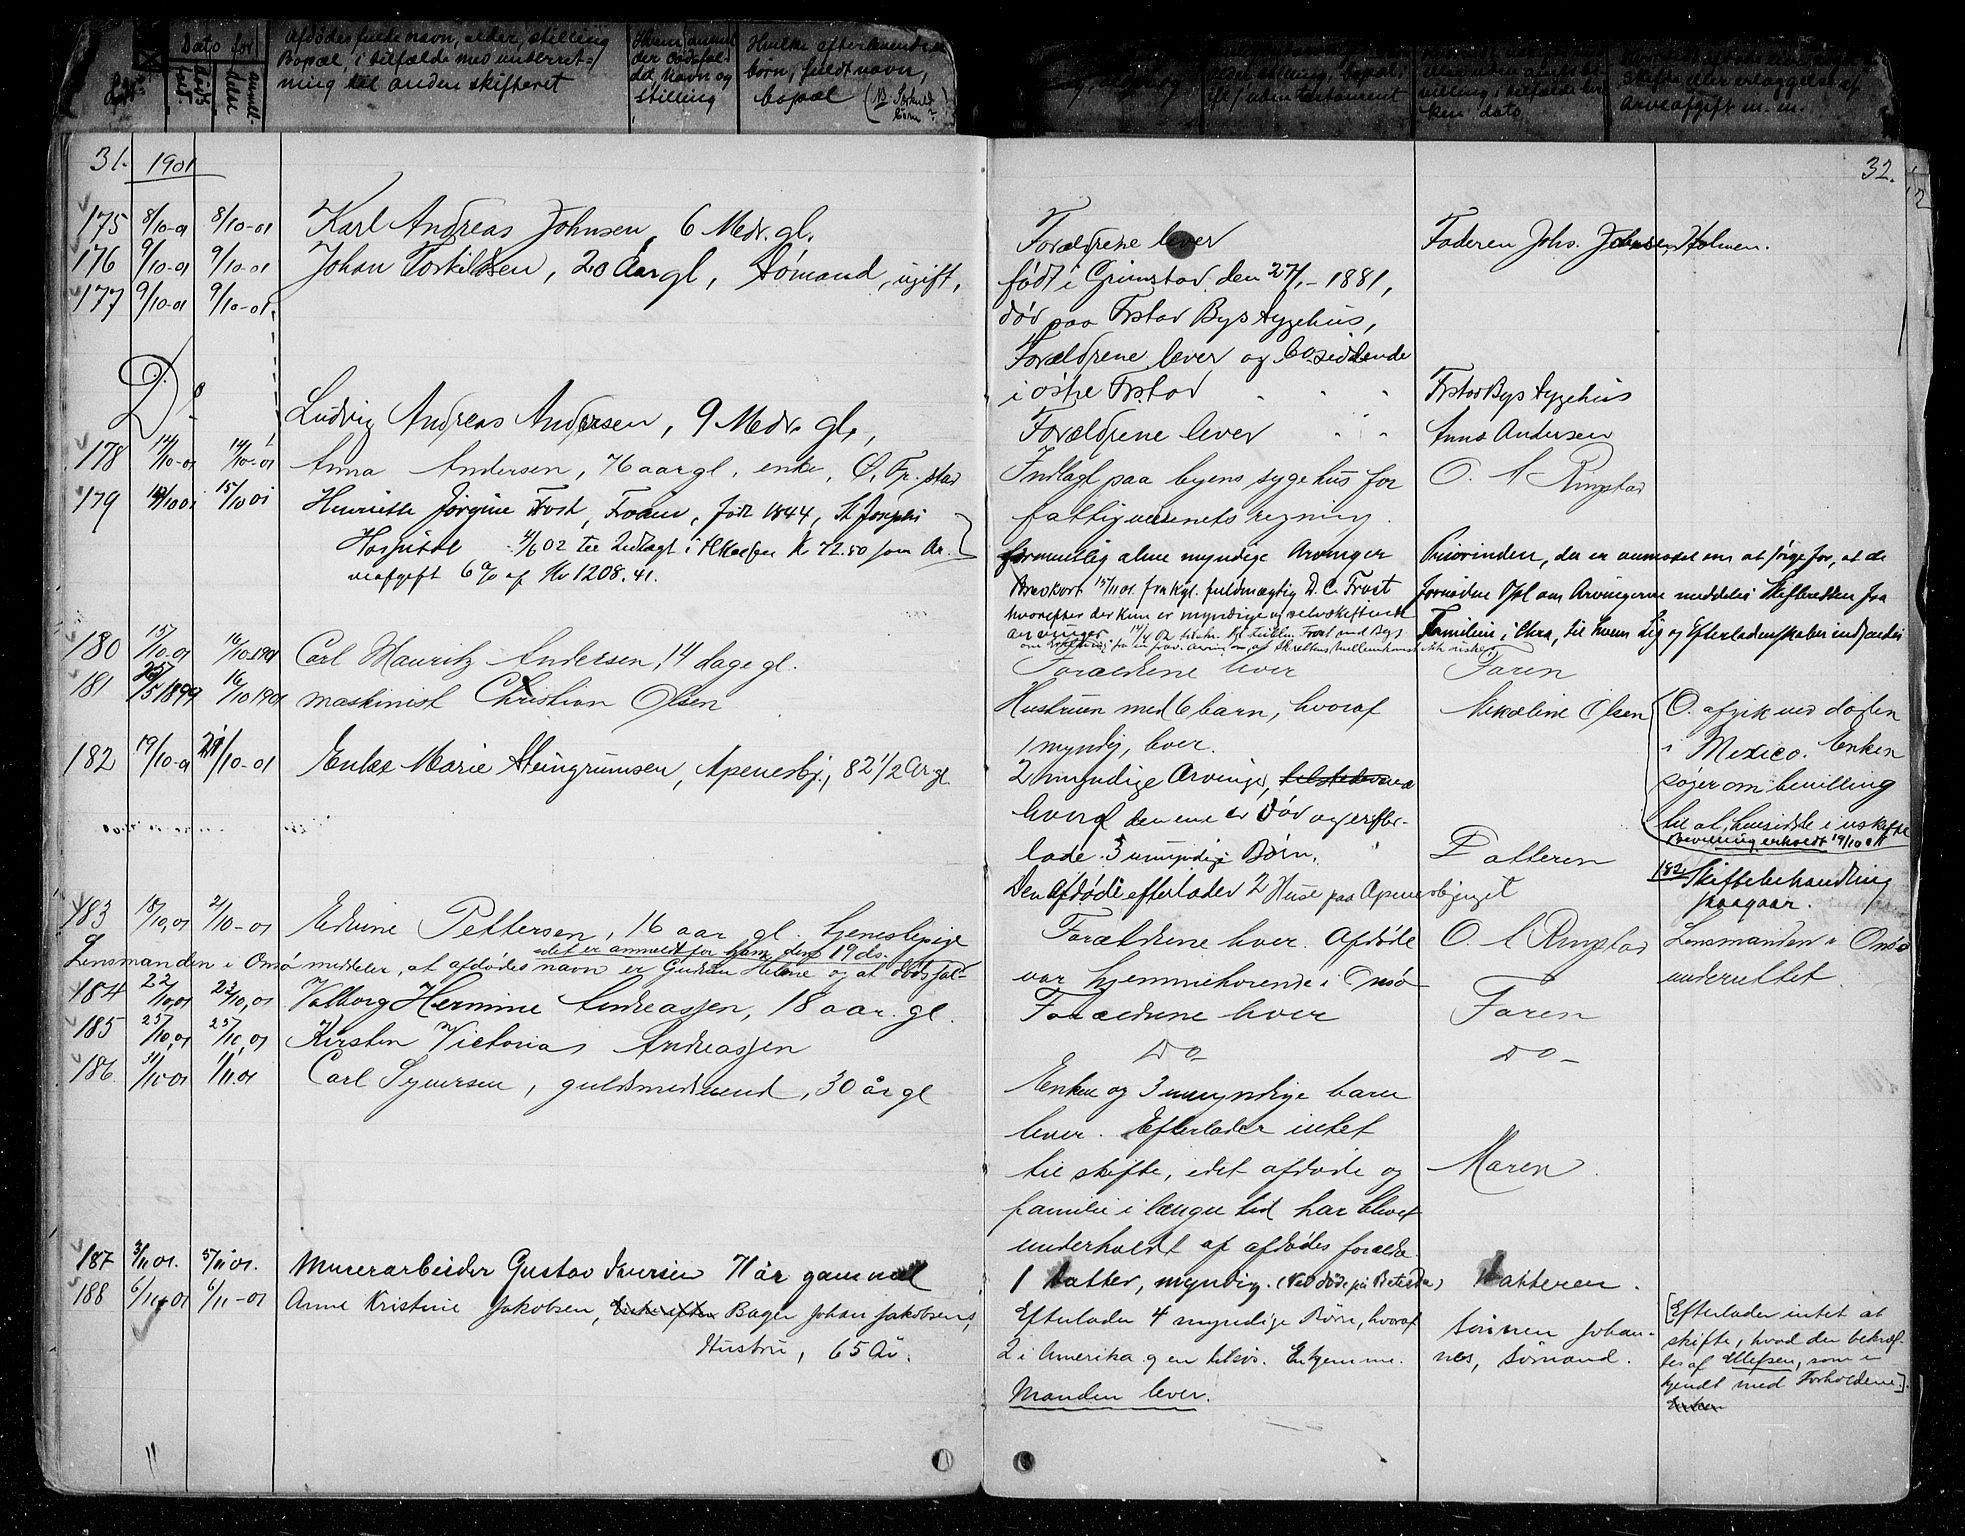 Dato for
Afdødes fulde navn, alder, stilling
Bopæl, i tilfælde med underret-
ning til anden skifteret
der dødsfal-
det, navn og
stilling
Hvilke efterlevende
børn, fuldt navn,
bopæl
stilling i tilfælde
ken dato
skifte eller erlæggelse af
Arveafgift m. m.
31. 1901
175 8/10-01 8/10-01 Karl Andreas Johnsen, 6 Mdr. gl.
176 9/10-01 9/10-01 Johan Torkildsen, 20 Aar gl, Sømand, ugift,
177 9/10-01 9/10-01
Do
Ludvig Andreas Andersen, 9 Mdr. gl.,
178 14/10-01 14/10-01 Anna Andersen, 76 aar gl. enke, Ø. Fr.stad
179 15/10 01 Henriette Jørgine Frost, Frøken, født 1844, St Josephs
Hospital 4/6 02 til Indtægt i Kr 72.50 som Ar-
veafgift 6 % af Kr 1208.41.
180 15/10-01 16/10 1901 Carl Mauritz Andersen, 14 dage gl.
181 25/5 1899 16/10 1901 maskinist Christian Olsen
182 19/10-01 21/10-01 Enke Marie Steingrimsen, Apenesbj., 82 1/2 Ar gl.
183 18/10,01 21/10-01 Edvine Pettersen, 16 aar gl. tjenestepige
idet er anmeldt for den 19 ds.
Lensmanden i Onsø meddeler, at afdødes navn er Gudrun Helene og at dødsfal-
184 22/10,01 23/10,01 Valborg Hermine Andreassen, 18 aar. gl.
185 25/10,01 25/10,01 Kirsten Victoria Andreassen
186. 31/10-01 1/11.01 Carl Syversen, guldsmedsvend, 30 år gl
187 3/11 01. 5/11 01. Murerarbeider Gustav Iversen 71 år gammel
188 6/11-01 6/11-01 Anne Kristine Jakobsen, Bager Johan Jakobsens,
Hustru, 65 År.
32.
Forældrene lever
Faderen Johs. Johnsen, Holmen.
født i Grimstad den 27/1-1881,
død paa Frstad Bys Sygehus,
Forældrene lever og bosiddende
i østre Frstad
Frstad Bys Sygehus
Forældrene lever
Anna Andersen
Indlagt paa byens sygehus for
fattigvæsenets regning.
O. A Ringstad
formentlig alene myndige Arvinger
Brevkort 15/11 01. fra Kgl. fuldmægtig D. C. Frost
hvorefter der kun er myndige og selvskiftende
arvinger
Priorinden, der er anmodet om at sørge for, at de
fornødne Opl om Arvingerne meddeles Skifteretten fra
Familien i Chra, til hvem Lig og Efterladenskaber indsendes
Forældrene lever
Faren
Hustruen med 6 barn, hvoraf
1 myndig, lever.
Nikoline Olsen
O. afgik ved døden
i Mexico. Enken
søger om bevilling
til at hensidde i uskifte
Bevilling erholdt 19/10 01
2 myndige Arvinge,
hvoraf den ene er død og efter-
lade 3 umyndige Børn.
Datteren
Den Afdøde efterlader 2 Huse paa Apenesbjerget
182 Skiftebehandling
paagaar.
Forældrene lever. Afdøde
var hjemmehørende i Onsø
O. A Ringstad
Lensmanden i Onsø
underrettet.
Forældrene lever
Faren
Do
Do
Enken og 3 umyndige barn
lever. Efterlader intet
til skifte, idet afdøde og
familie i længre tid har blevet
underholdt af afdødes forældre.
Maren
1 Datter, myndig. (Ved døde på Betesda)
Datteren.
Efterlader 4 myndige Børn, hvoraf
2 i Amerika og en tilsøs. En hjemme.
Manden lever.
Sønnen Johan-
nes, Sømand.
[Efterlader intet at
skifte, hvad der bekræf-
tes af Ellefsen, som er
kjendt med Forholdene.]